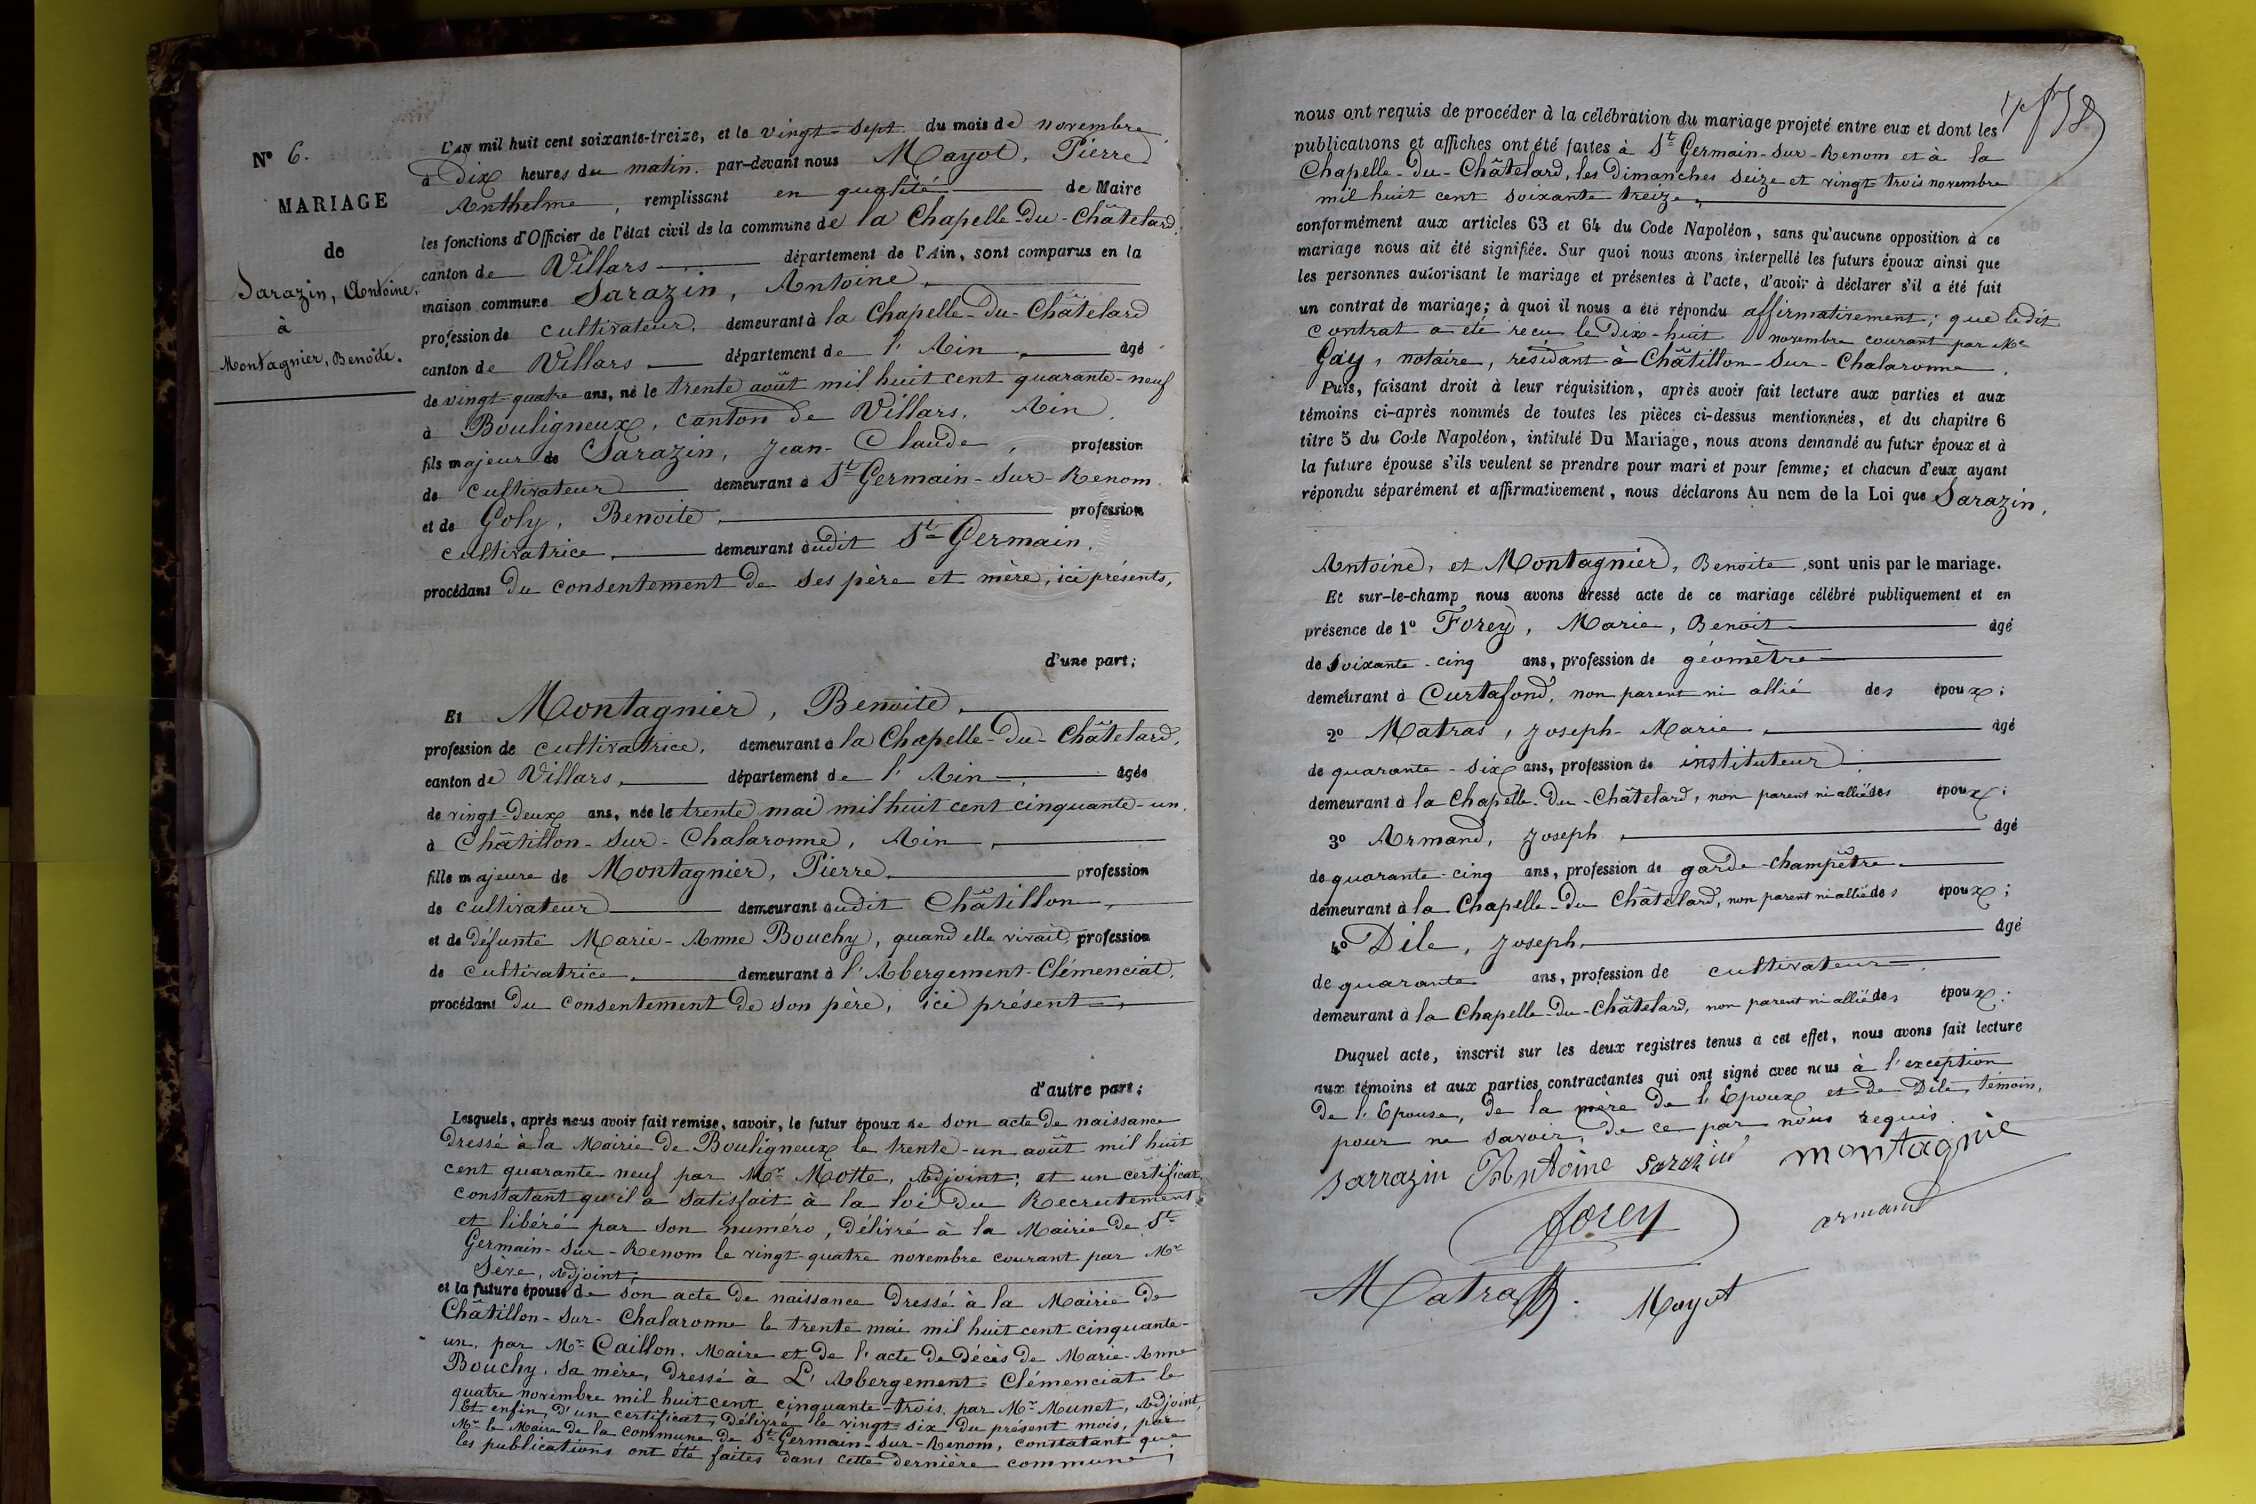 N° 6.
MARIAGE
de
Sarazin, Antoine.
à
Montagnier, Benoite.
L'AN mil huit cent soixante-treize, et le vingt-sept du mois de novembre
à Dix heures du matin, par-devant nous Mayot, Pierre
Anthelme, remplissant en qualité de Maire
les fonctions d'Officier de l'état civil de la commune de la Chapelle-Du-Châtelard,
canton de Villars département de l'Ain, sont comparus en la
maison commune Sarazin, Antoine,
profession de cultivateur, demeurant à la Chapelle-Du-Châtelard
canton de Villars département de l'Ain, âgé
de vingt-quatre ans, né le trente août mil huit cent quarante-neuf
à Bouligneux, canton de Villars, Ain,
fils majeur de Sarazin, Jean-Claude, profession
de cultivateur demeurant à St Germain-Sur-Renom
et de Goly, Benoite, profession
cultivatrice, demeurant audit St Germain,
procédant Du consentement De ses père et mère, ici présents,
d'une part;
Et Montagnier, Benoite,
profession de cultivatrice, demeurant à la Chapelle-Du-Châtelard,
canton de Villars, département de l'Ain, âgée
de vingt-Deux ans, née le trente mai mil huit cent cinquante-un,
à Châtillon-Sur-Chalaronne, Ain,
fille majeure de Montagnier, Pierre, profession
de cultivateur demeurant audit Châtillon,
et de Défunte Marie-Anne Bouchy, quand elle vivait, profession
de cultivatrice, demeurant à l'Abergement-Clémenciat,
procédant Du consentement De son père, ici présent,
d'autre part;
Lesquels, après nous avoir fait remise, savoir, le futur époux de son acte De naissance
Dressé à la Mairie De Bouligneux le trente-un août mil huit
cent quarante neuf par Mr Motte, Adjoint; et un certificat
constatant qu'il a satisfait à la loi Du Recrutement
et libéré par son numéro, Délivré à la Mairie De St
Germain-Sur-Renom le vingt-quatre novembre courant par Mr
Sève, Adjoint,
et la future épouse de son acte De naissance Dressé à la Mairie De
Chatillon-Sur-Chalaronne le trente mai mil huit cent cinquante-
un, par Mr Caillon, Maire et De l'acte De Décès De Marie-Anne
Bouchy, sa mère, Dressé à L'Abergement-Clémenciat le
quatre novembre mil huit cent cinquante-trois, par Mr Munet, Adjoint,
Et enfin, D'un certificat, Délivré le vingt-six Du présent mois, par
Mr le Maire De la commune De St Germain-Sur-Renom, constatant que
les publications ont été faites Dans cette Dernière commune;
nous ont requis de procéder à la célébration du mariage projeté entre eux et dont les
publications et affiches ont été faites à St Germain-Sur-Renom et à la
Chapelle-Du-Châtelard, les Dimanches seize et vingt trois novembre
mil huit cent soixante treize,
conformément aux articles 63 et 64 du Code Napoléon, sans qu'aucune opposition à ce
mariage nous ait été signifiée. Sur quoi nous avons interpellé les futurs époux ainsi que
les personnes autorisant le mariage et présentes à l'acte, d'avoir à déclarer s'il a été fait
un contrat de mariage; à quoi il nous a été répondu affirmativement; que ledit
contrat a été reçu le Dix-huit novembre courant par Me
Gay, notaire, résidant à Châtillon-Sur-Chalaronne.
Puis, faisant droit à leur réquisition, après avoir fait lecture aux parties et aux
témoins ci-après nommés de toutes les pièces ci-dessus mentionnées, et du chapitre 6
titre 5 du Code Napoléon, intitulé Du Mariage, nous avons demandé au futur époux et à
la future épouse s'ils veulent se prendre pour mari et pour femme; et chacun d'eux ayant
répondu séparément et affirmativement, nous déclarons Au nom de la Loi que Sarazin,
Antoine, et Montagnier, Benoite, sont unis par le mariage.
Et sur-le-champ nous avons dressé acte de ce mariage célébré publiquement et en
présence de 1° Forey, Marie, Benoit âgé
de soixante-cinq ans, profession de géomètre
demeurant à Curtafond, non parent ni allié des époux;
2° Matras, Joseph-Marie, âgé
de quarante-six ans, profession de instituteur,
demeurant à la Chapelle-Du-Châtelard, non parent ni allié des époux;
3° Armand, Joseph, âgé
de quarante-cinq ans, profession de garde-champêtre
demeurant à la Chapelle-Du Châtelard, non parent ni allié des époux;
4° Dile, Joseph, âgé
de quarante ans, profession de cultivateur,
demeurant à la Chapelle-Du-Châtelard, non parent ni allié des époux;
Duquel acte, inscrit sur les deux registres tenus à cet effet, nous avons fait lecture
aux témoins et aux parties contractantes qui ont signé avec nous à l'exception
De l'Epouse, De la mère De l'Epoux et De Dile, témoin,
pour ne savoir, De ce par nous requis.
Sarrazin Antoine sarazin montagnié
forey armand
Matras Mayot